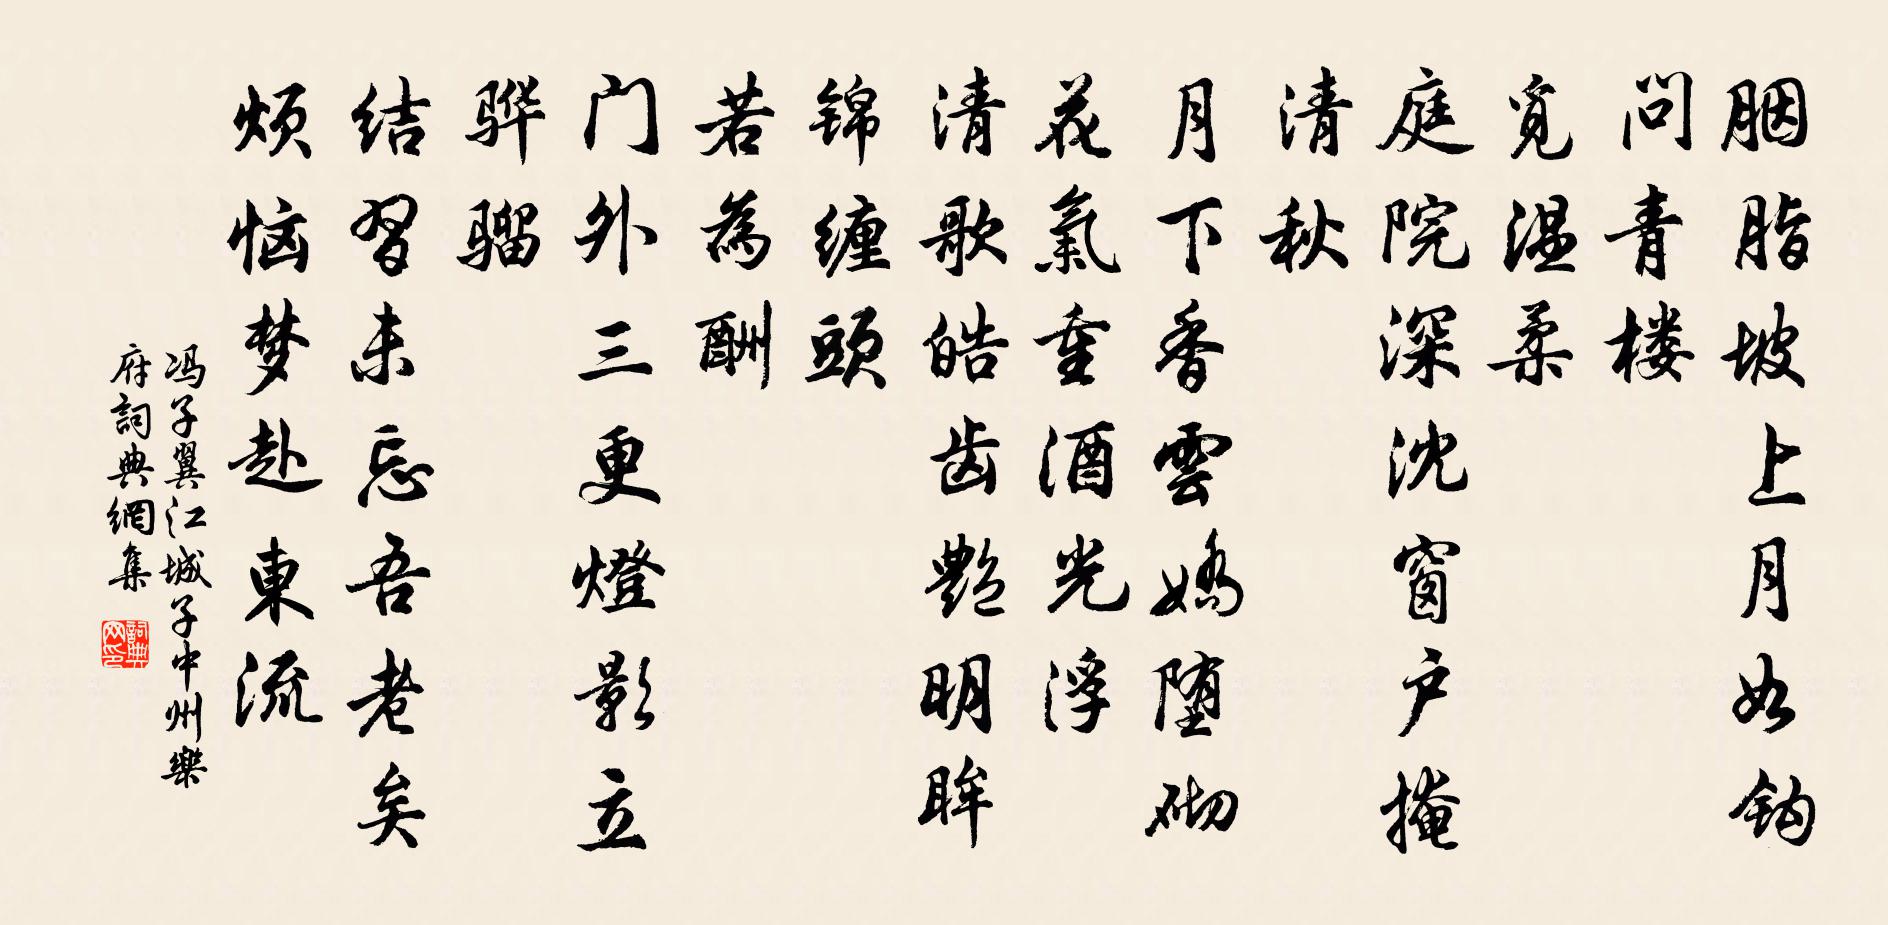 胭脂坡上月如钩
问青楼
觅温柔
庭院深沈窗户掩
清秋
月下香雲娇堕砌
花氣重酒光浮
清歌皓齿艷明眸
锦缠頭
若為酬
门外三更燈影立
骅骝
结習未忘吾老矣
烦恼梦赴東流
冯子翼江城子中州樂
府詞典網集
詞典
网印